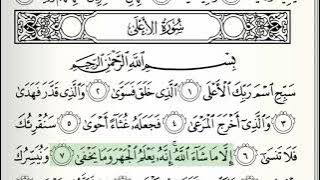 سُورَةُ الأَعْلَىٰ
بِسْمِ ٱللَّهِ ٱلرَّحْمَٰنِ ٱلرَّحِيمِ
سَبِّحِ ٱسْمَ رَبِّكَ ٱلْأَعْلَى ١ ٱلَّذِى خَلَقَ فَسَوَّىٰ ٢ وَٱلَّذِى قَدَّرَ فَهَدَىٰ
٣ وَٱلَّذِىٓ أَخْرَجَ ٱلْمَرْعَىٰ ٤ فَجَعَلَهُۥ غُثَآءً أَحْوَىٰ ٥ سَنُقْرِئُكَ
فَلَا تَنسَىٰٓ ٦ إِلَّا مَا شَآءَ ٱللَّهُ ۚ إِنَّهُۥ يَعْلَمُ ٱلْجَهْرَ وَمَا يَخْفَىٰ ٧ وَنُيَسِّرُكَ